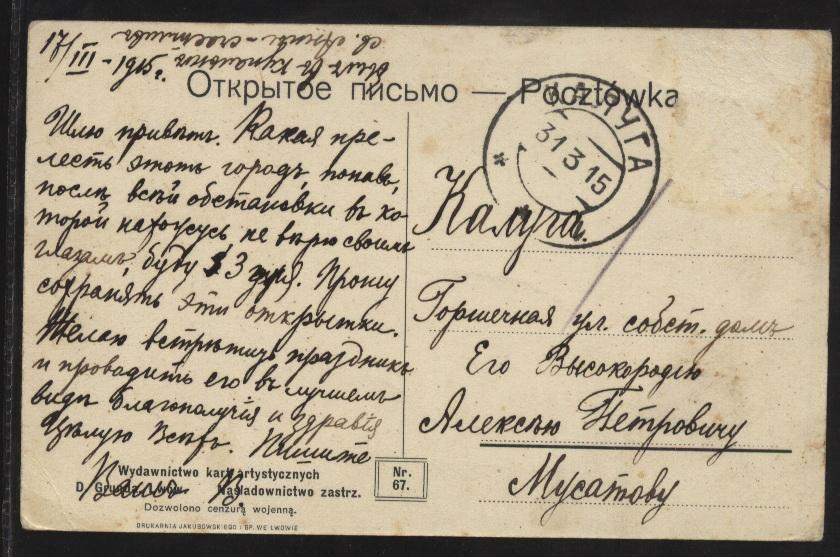 17/III - 1915 г.
Открытое письмо — Pocztówka
КАЛУГА
31 3 15
Шлю привѣтъ. Какая пре-
лесть этотъ городъ, попавъ
послѣ всей обстановки въ ко-
торой нахожусь, не вѣрю своимъ
глазамъ, буду 3 дня. Прошу
сохранять эти открытки.
Желаю встрѣтить праздникъ
и проводить его въ лучшемъ
видѣ благополучія и здравія
Цѣлую всѣхъ. Пишите
Калуга.
Горшечная ул. собст. домъ
Его Высокородію
Алексѣю Петровичу
Мусатову
Wydawnictwo kart artystycznych
Naśladownictwo zastrz.
Dozwolono cenzurą wojenną.
Nr.
67.
DRUKARNIA JAKUBOWSKIEGO I SP. WE LWOWIE